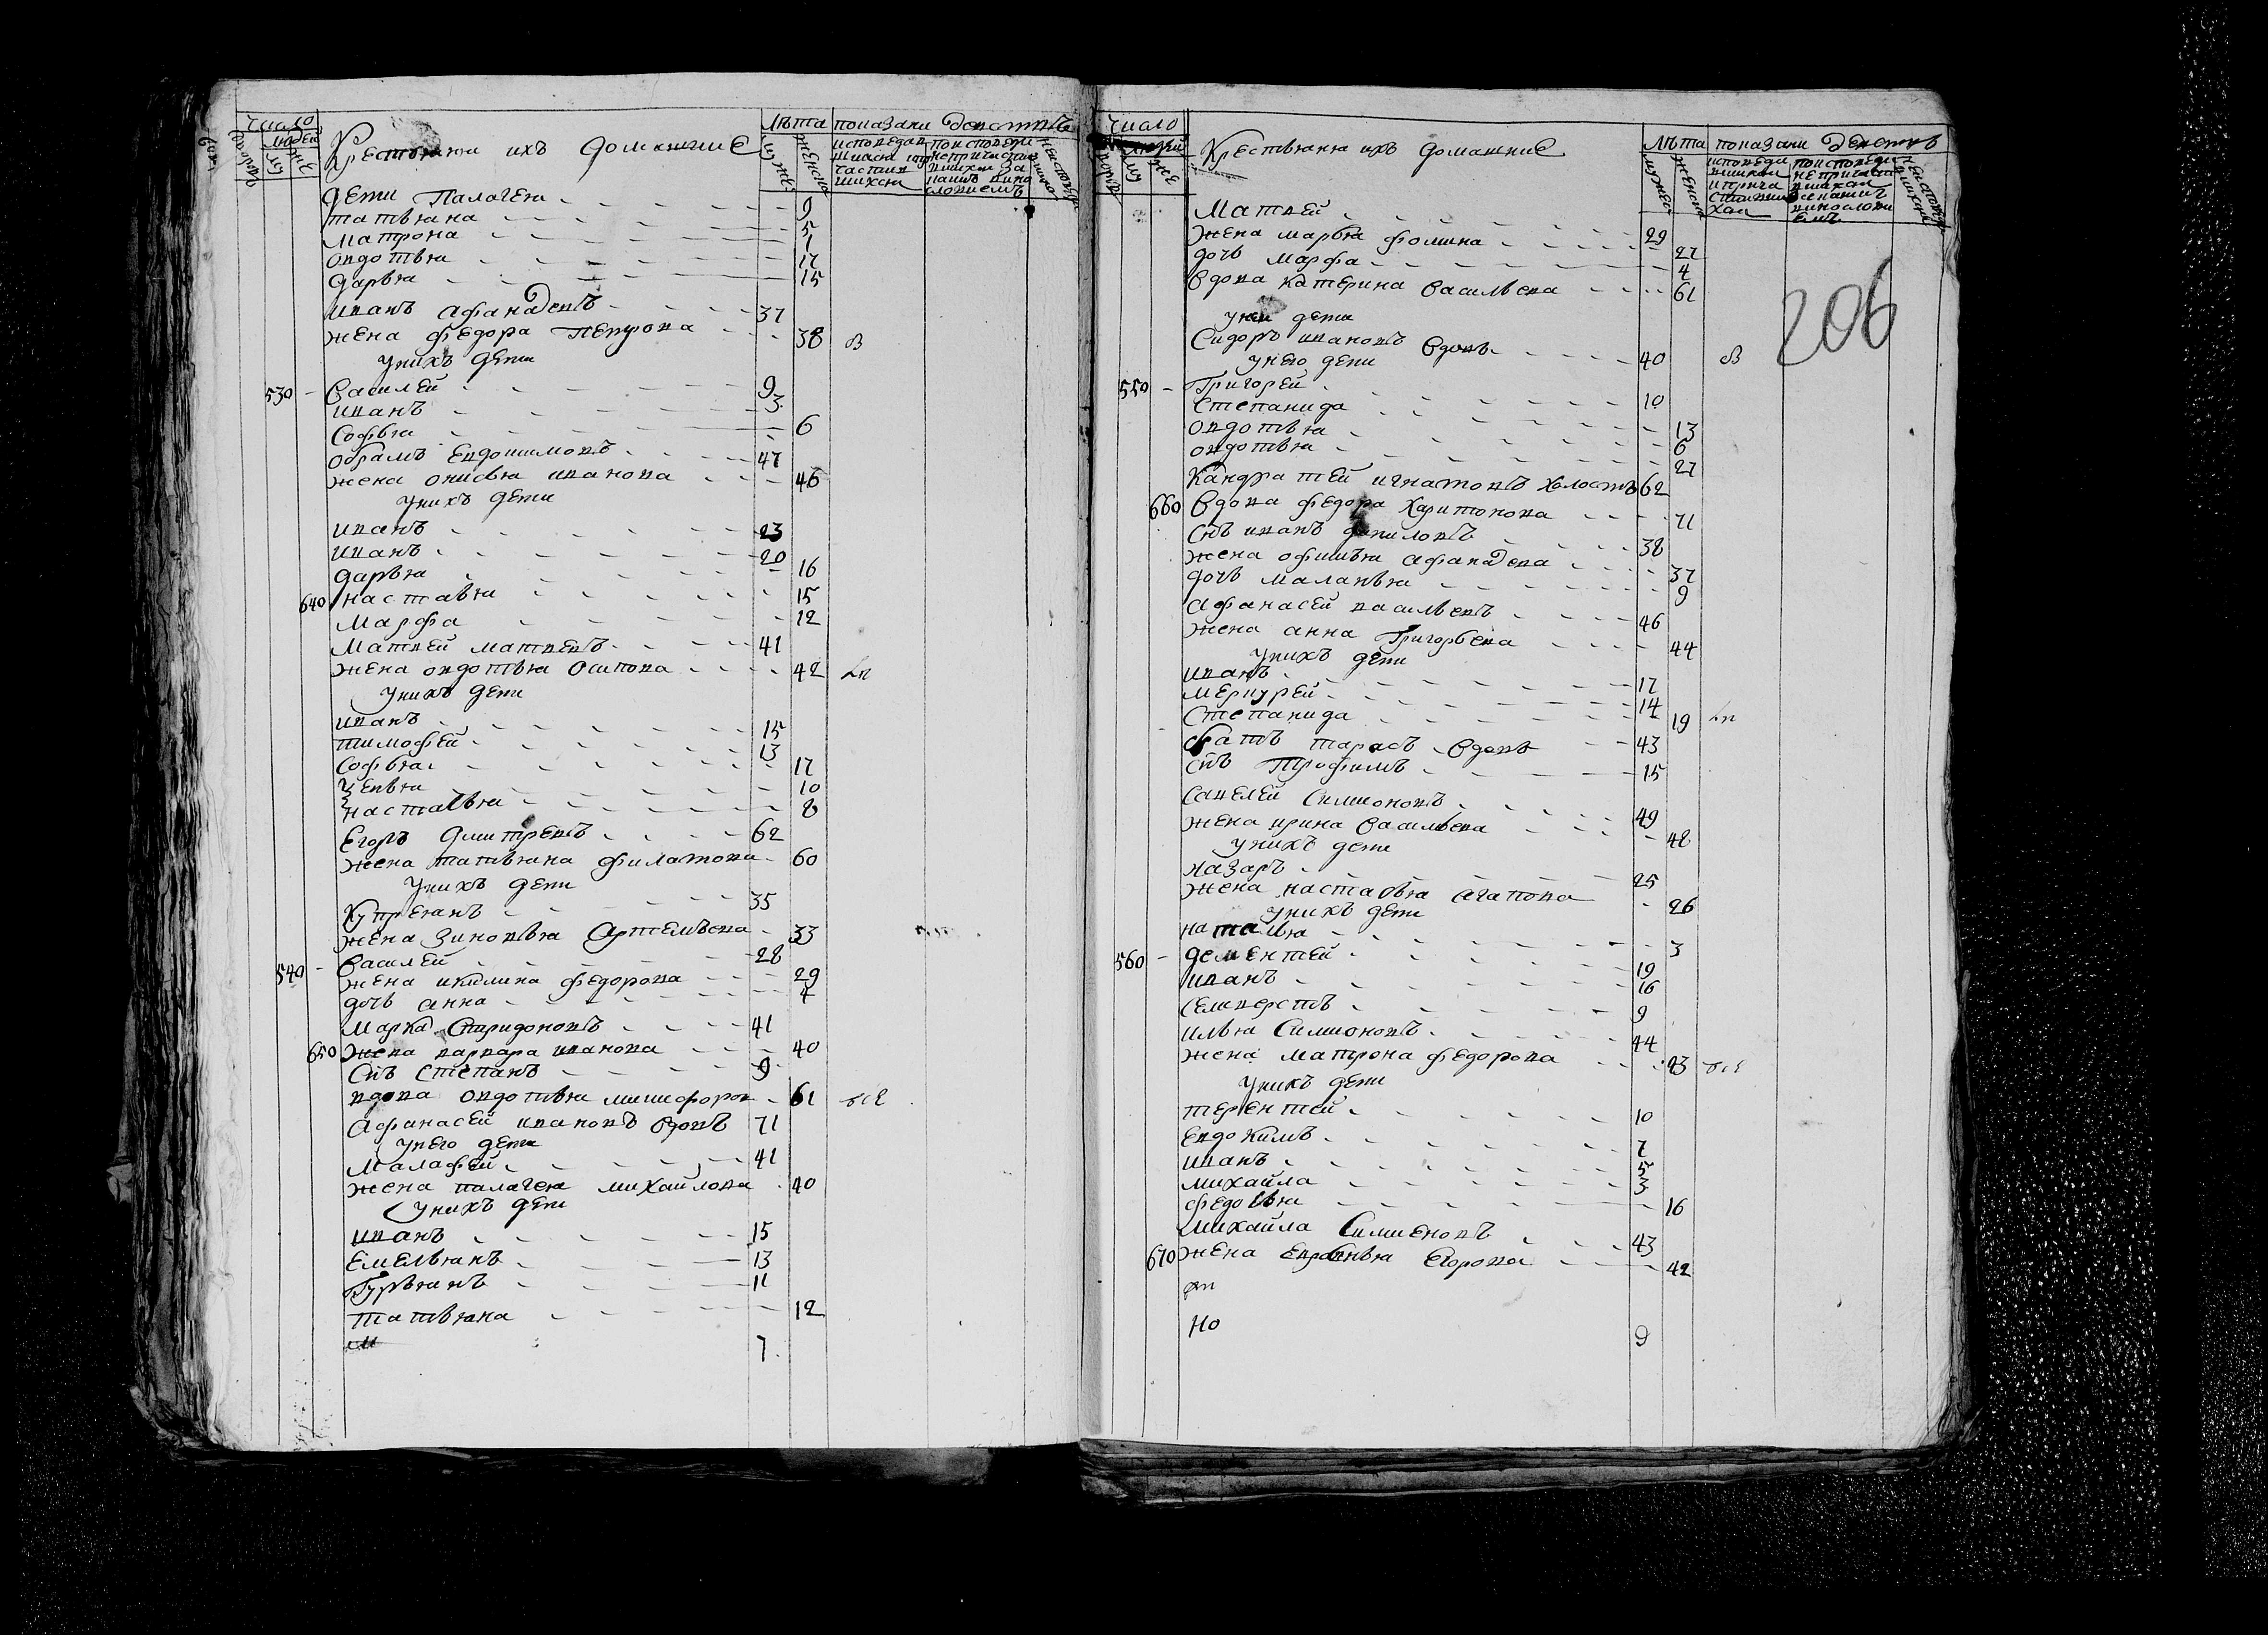 число
людей
Крестьяня ихъ домашние
Лѣта показани действъ
дети Палагея 9
татьяна 5
матрона 1
овдотья 17
дарья 15
иванъ афанасьевъ 37
жена федора Петрова 38
у нихъ дети
530 Василей 9
иванъ 3
Софья 6
обрамъ Евдокимовъ 47
жена онисья иванова 46
у нихъ дети
иванъ 23
иванъ 20
дарья 16
640 настасья 15
марфа 12
Матвей матвеевъ 41
жена овдотья Осипова 42
у нихъ дети
иванъ 15
тимофей 13
Софья 17
10
настасья 8
Егоръ дмитревъ 62
жена татьяна филатова 60
у нихъ дети
Купреянъ 35
жена Зиновья Артемьева 33
540 Василей 28
жена акилина федорова 29
дочь анна
Марка Спиридоновъ 41
650 жена варвара иванова 40
Снъ Степанъ 9
вдова овдотья 61
Афанасей ивановъ вдовъ 71
у нево дети
Малафей 41
жена палагея михайлова 40
у нихъ дети
иванъ 15
Емельянъ 13
Гурьянъ 11
татьяна 12
м 7
число
людей
Крестьяня ихъ домашние
Лѣта показани действъ
Матвей 29
жена марья фомина 27
дочь марфа 4
Вдова катерина васильева 61
у неи дети
Сидоръ ивановъ вдовъ 40
у нево дети
206
550 Григорей 10
Степанида 13
овдотья 6
овдотья 27
Кандратей игнатовъ холостъ 62
660 Вдова федора Харитонова 71
Снъ иванъ даниловъ 38
жена офимья афанасьева 37
дочь маланья 9
афанасей васильевъ 46
жена анна Григорьева 44
у нихъ дети
иванъ 17
меркурей 14
Степанида 19
братъ тарасъ вдовъ 43
снъ Трофимъ 15
Савелей Симионовъ 49
жена ирина васильева 48
у нихъ дети
назаръ 25
жена настасья агапова 26
у нихъ дети
наталья 3
560 дементей 19
иванъ 16
Селиверстъ 9
илья Симионовъ 44
жена матрона федорова 23
у нихъ дети
терентей 10
Евдокимъ 7
иванъ 5
михайла 3
федосья 16
михайла Симионовъ 43
670 жена Епросинья Егорова 42
но 9